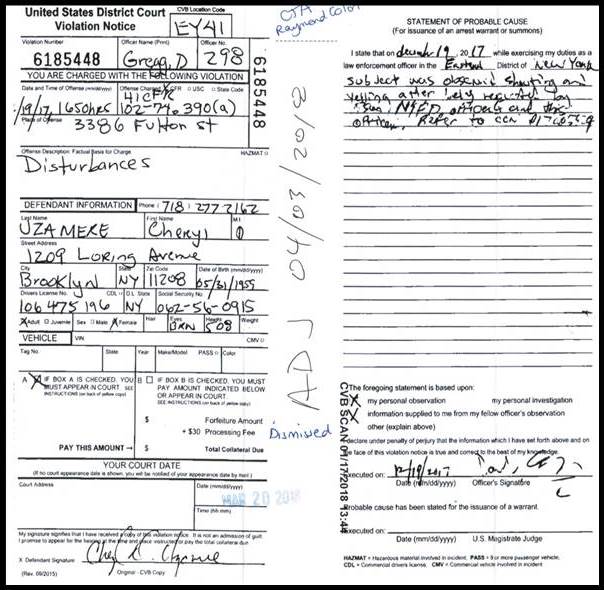 United States District Court
Violation Notice
CVB Location Code
EY41
Violation Number
Officer Name (Print)
Officer No.
6185448
Gregg, D
298
YOU ARE CHARGED WITH THE FOLLOWING VIOLATION
Date and Time of Offense (mm/dd/yyyy)
Offense Charged CFR USC State Code
/19/17, 1650hrs
41CFR
102-74.390(a)
Place of Offense
3386 Fulton st
Offense Description: Factual Basis for Charge
HAZMAT
Disturbances
DEFENDANT INFORMATION
Phone: (718) 277 2162
Last Name
First Name
M.I.
UZAMERE
Cheryl
Street Address
1209 Loring Avenue
City
State
Zip Code
Date of Birth (mm/dd/yyyy)
Brooklyn
NY
11208
05/31/1955
Drivers License No.
CDL
D.L. State
Social Security No.
106475196
NY
062-56-0915
Adult Juvenile Sex Male Female
Hair
Eyes
Height
Weight
BRN
508
VEHICLE
VIN
CMV
Tag No.
State
Year
Make/Model
PASS
Color
A
IF BOX A IS CHECKED, YOU MUST APPEAR IN COURT. SEE INSTRUCTIONS (on back of yellow copy)
B
IF BOX B IS CHECKED, YOU MUST PAY AMOUNT INDICATED BELOW OR APPEAR IN COURT.
SEE INSTRUCTIONS (on back of yellow copy)
$ Forfeiture Amount
+ $30 Processing Fee
PAY THIS AMOUNT → $ Total Collateral Due
YOUR COURT DATE
(If no court appearance date is shown, you will be notified of your appearance date by mail.)
Court Address
Date (mm/dd/yyyy)
MAR 20 2018
Time (hh:mm)
My signature signifies that I have received a copy of this violation notice. It is not an admission of guilt.
I promise to appear for the hearing at the time and place instructed or pay the total collateral due.
X Defendant Signature
(Rev. 09/2015)
Original - CVB Copy
6185448
CJA
Raymond Colon
ADJ 04/03/2018
Dismissed
CVB SCAN 01/17/2018 13:44
STATEMENT OF PROBABLE CAUSE
(For issuance of an arrest warrant or summons)
I state that on december 19, 2017 while exercising my duties as a
law enforcement officer in the Eastern District of New York
subject was observed shouting and
yelling after being requested by
NYPD officers and this
officer. Refer to ccn
The foregoing statement is based upon:
X my personal observation
my personal investigation
X information supplied to me from my fellow officer's observation
other (explain above)
declare under penalty of perjury that the information which I have set forth above and on
the face of this violation notice is true and correct to the best of my knowledge.
Executed on: 12/19/2017
Date (mm/dd/yyyy)
Officer's Signature
Probable cause has been stated for the issuance of a warrant.
Executed on:
Date (mm/dd/yyyy)
U.S. Magistrate Judge
HAZMAT = Hazardous material involved in incident. PASS = 9 or more passenger vehicle.
CDL = Commercial drivers license. CMV = Commercial vehicle involved in incident